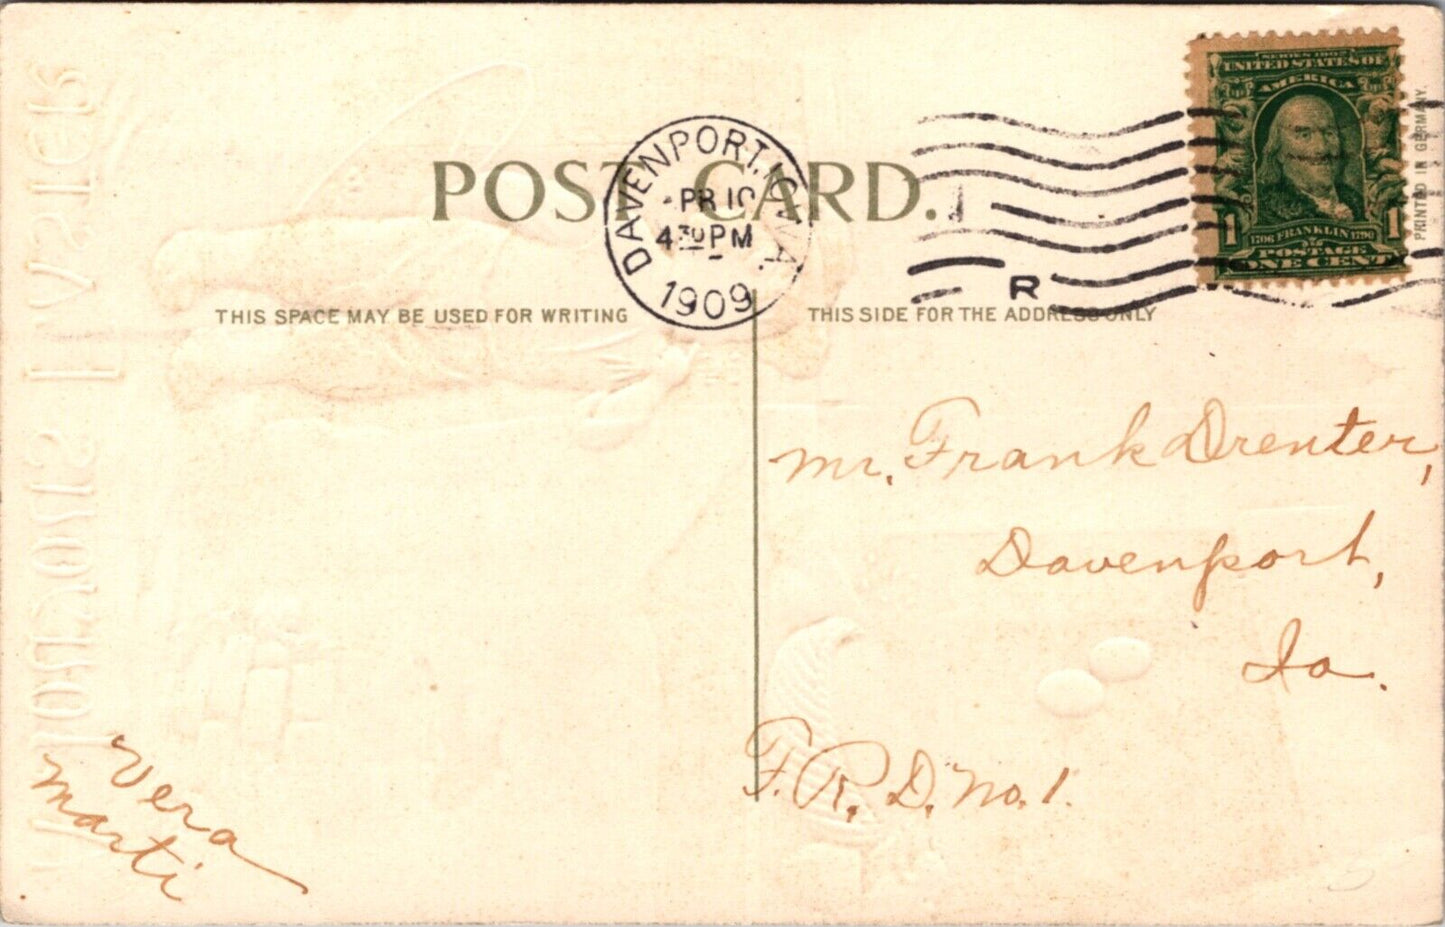 POST CARD.
DAVENPORT, IOWA.
PR 10
4 30 PM
1909
R
SERIES 1902
UNITED STATES OF
AMERICA
1 1
1706 FRANKLIN 1790
POSTAGE
ONE CENT
PRINTED IN GERMANY.
THIS SPACE MAY BE USED FOR WRITING
THIS SIDE FOR THE ADDRESS ONLY
Mr. Frank Drenter,
Davenport,
Ia.
F. R. D. No. 1.
Vera
Marti